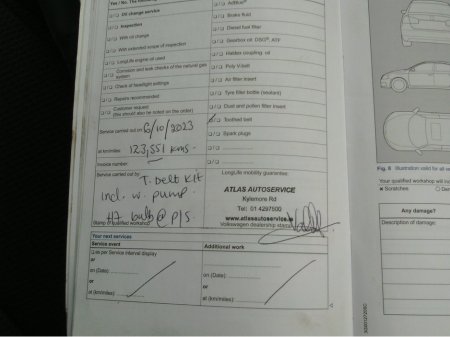 Yes / No. The fol
Oil change service
Inspection
With oil change
With extended scope of inspection
LongLife engine oil used
Corrosion and leak checks of the natural gas system
Check of headlight settings
Repairs recommended
Customer request
(this should also be noted on the order)
AdBlue®
Brake fluid
Diesel fuel filter
Gearbox oil: DSG®, ATF
Haldex coupling: oil
Poly V-belt
Air filter insert
Tyre filler bottle (sealant)
Dust and pollen filter insert
Toothed belt
Spark plugs
Service carried out on: 6/10/2023
at km/miles: 123,551 kms
Invoice number:
Service carried out by: T. Belt Kit
incl. w. pump.
H7 bulb @ P/S.
Stamp of qualified workshop
LongLife mobility guarantee:
ATLAS AUTOSERVICE
Kylemore Rd
Tel: 01 4297500
www.atlasautoservice.ie
Volkswagen dealership stamp
Your next services
Service event
as per Service interval display
or
on (Date):
or
at (km/miles):
Additional work
on (Date):
or
at (km/miles):
Fig. 8 Illustration valid for all
Your qualified workshop will in
Scratches
Any damage?
Description of damage: